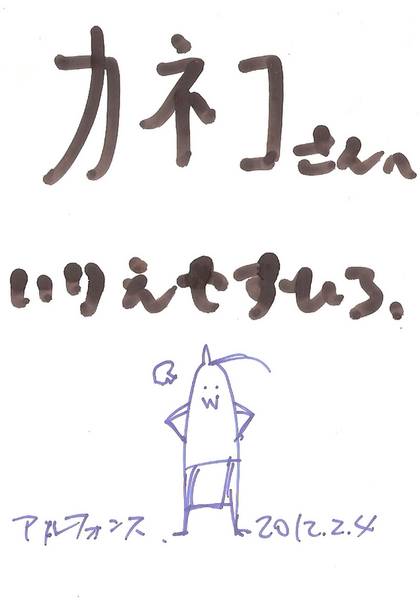 カネコさんへ
いりえやすひろ、
アルフォンス. 2012.2.4